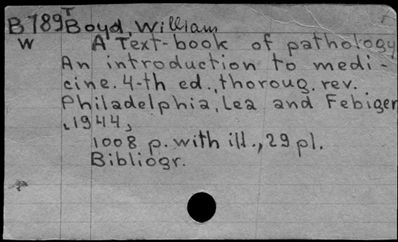 B789T Boyd, William
W A Text-book of pathology
An introduction to medi-
cine. 4-th ed., thoroug. rev.
Philadelphia, Lea and Febiger
,1944,
1008 p. with ill., 29 pl.
Bibliogr.